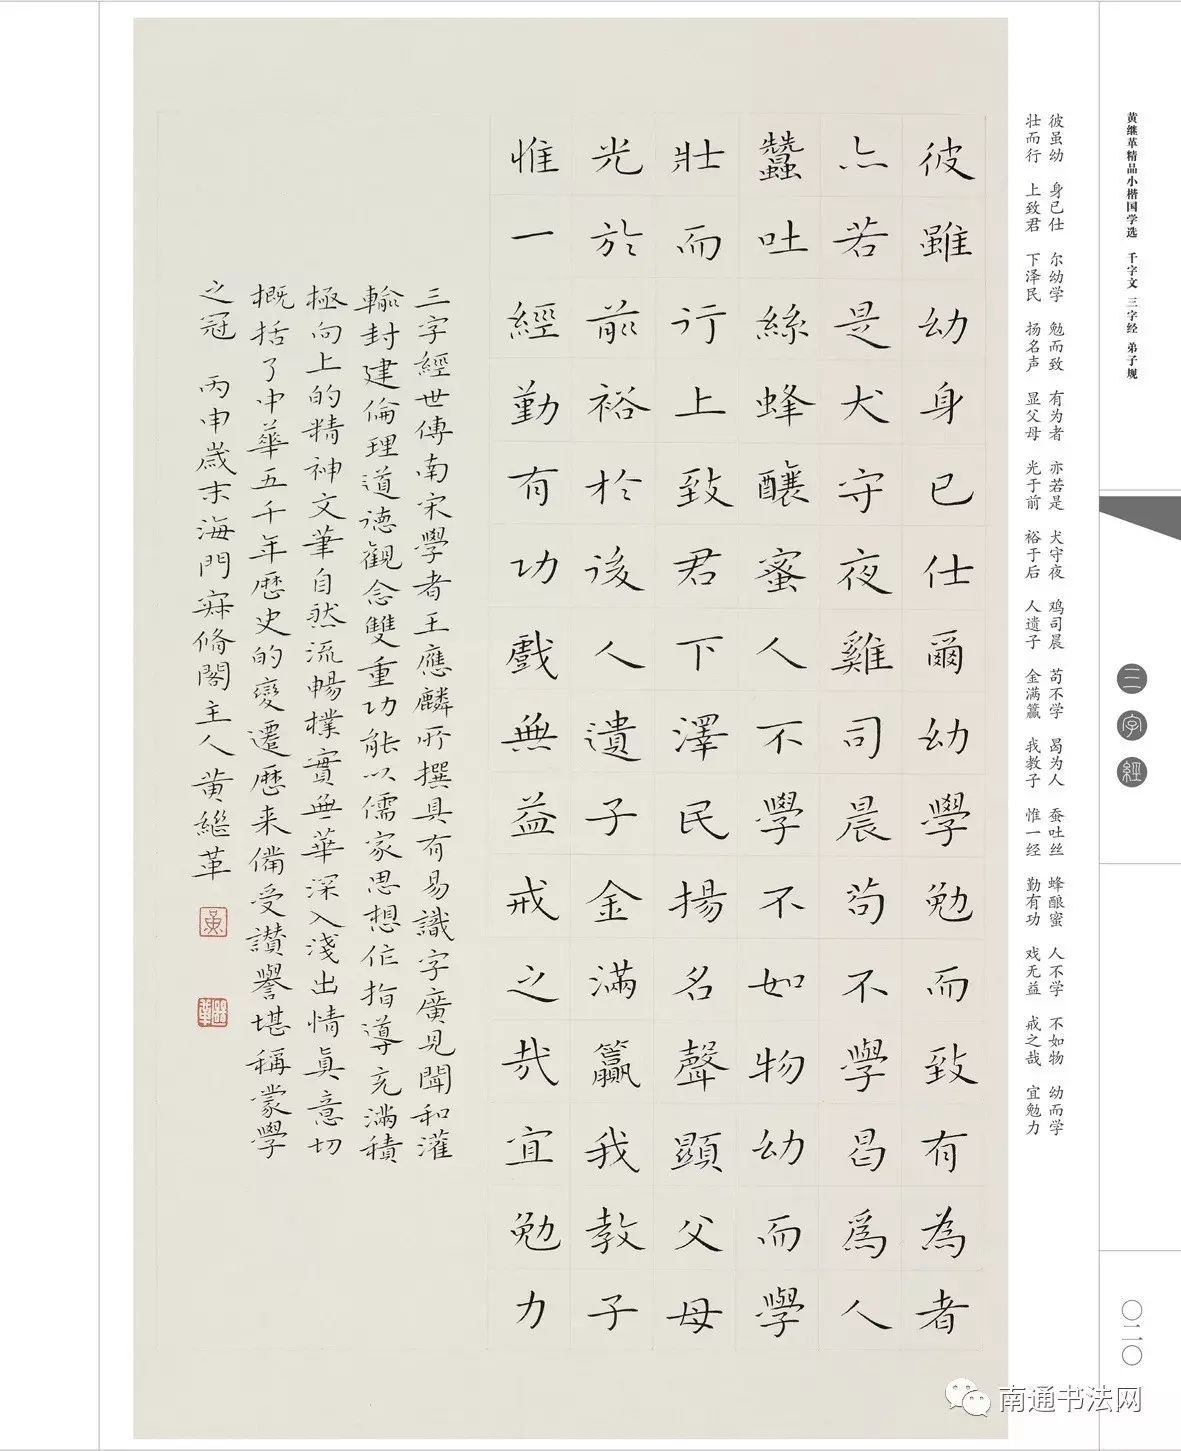 黄继革精品小楷国学选 千字文 三字经 弟子规
三字經
〇二〇
彼虽幼 身已仕 尔幼学 勉而致 有为者 亦若是 犬守夜 鸡司晨 苟不学 曷为人 蚕吐丝 蜂酿蜜 人不学 不如物 幼而学
壮而行 上致君 下泽民 扬名声 显父母 光于前 裕于后 人遗子 金满籯 我教子 惟一经 勤有功 戏无益 戒之哉 宜勉力
彼雖幼身已仕爾幼學勉而致有為者
亦若是犬守夜雞司晨苟不學曷爲人
蠶吐絲蜂釀蜜人不學不如物幼而學
壯而行上致君下澤民揚名聲顯父母
光於前裕於後人遺子金滿籯我教子
惟一經勤有功戲無益戒之哉宜勉力
三字經世傳南宋學者王應麟所撰具有易識字廣見聞和灌
輸封建倫理道德觀念雙重功能以儒家思想作指導充滿積
極向上的精神文筆自然流暢樸實無華深入淺出情真意切
概括了中華五千年歷史的變遷歷来備受讃譽堪稱蒙學
之冠 丙申歲末海門寐脩閣主人黄繼革
黄
繼革
南通书法网